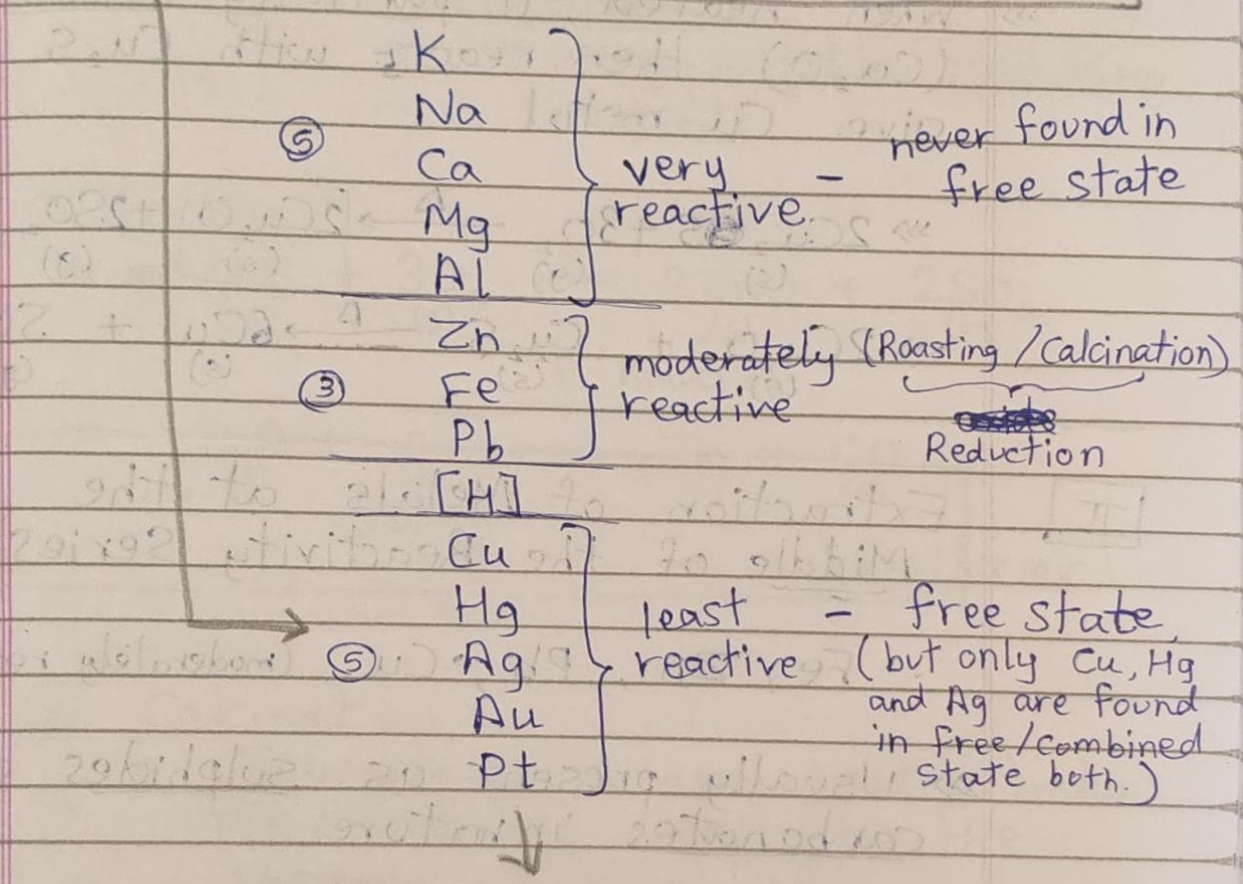 K
Na
⑤ Ca
Mg
Al
very reactive. - never found in free state
Zn
③ Fe
Pb
moderately (Roasting / Calcination)
reactive
Reduction
[H]
Cu
Hg
⑤ Ag
Au
Pt
least - free state
reactive (but only Cu, Hg
and Ag are found
in free/combined
state both.)